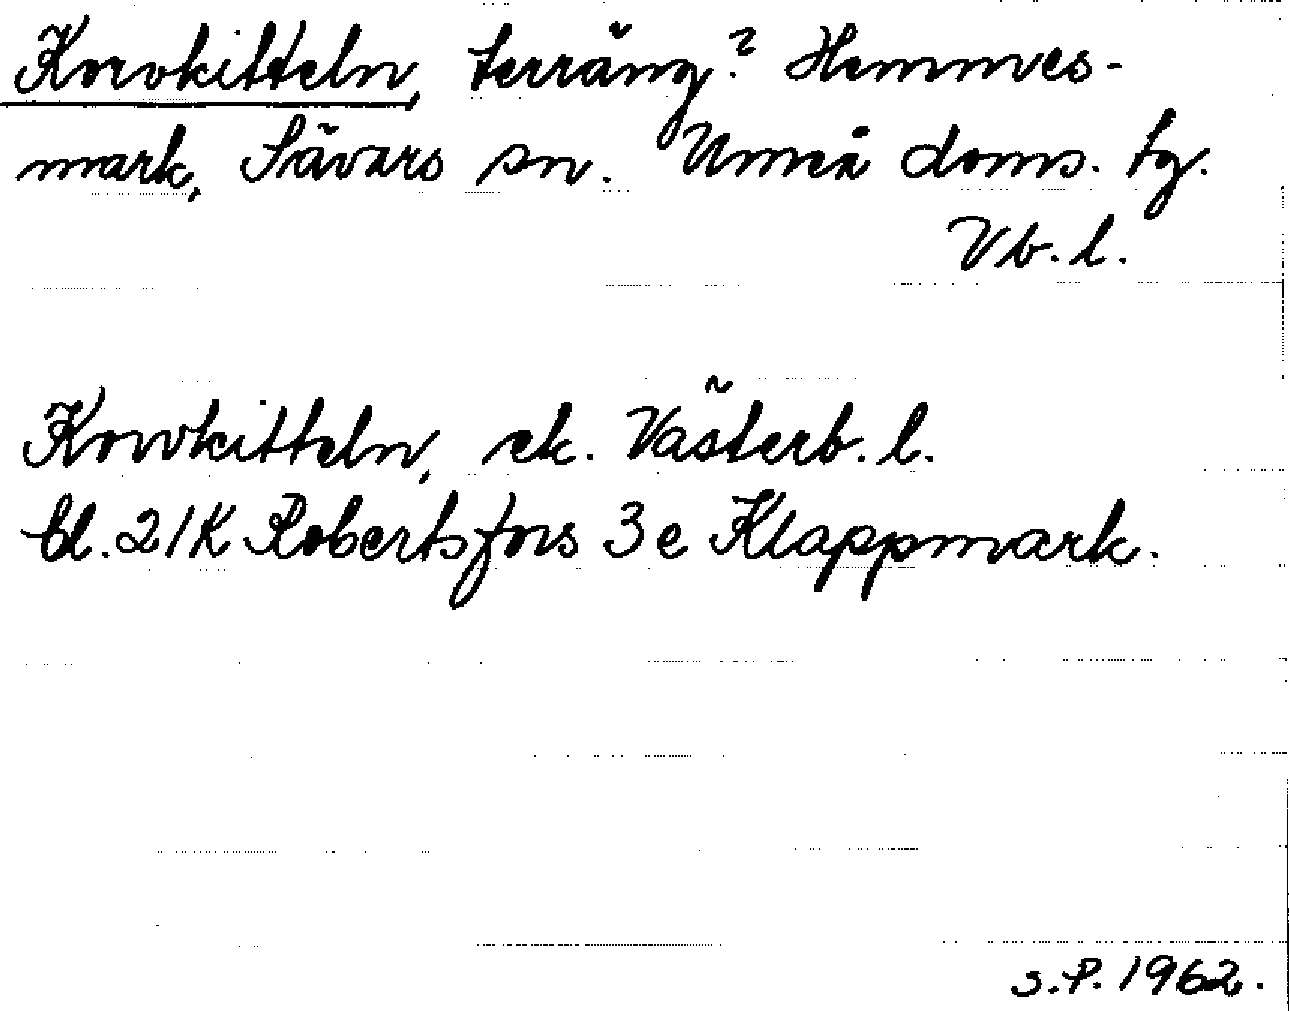 Korvkitteln, terräng? Hemmes-
mark, Sävars sn. Umeå doms. tg.
Vb. l.
Korvkitteln, ek. Västerb. l.
bl. 21K Robertsfors 3e Klappmark.
S.P. 1962.